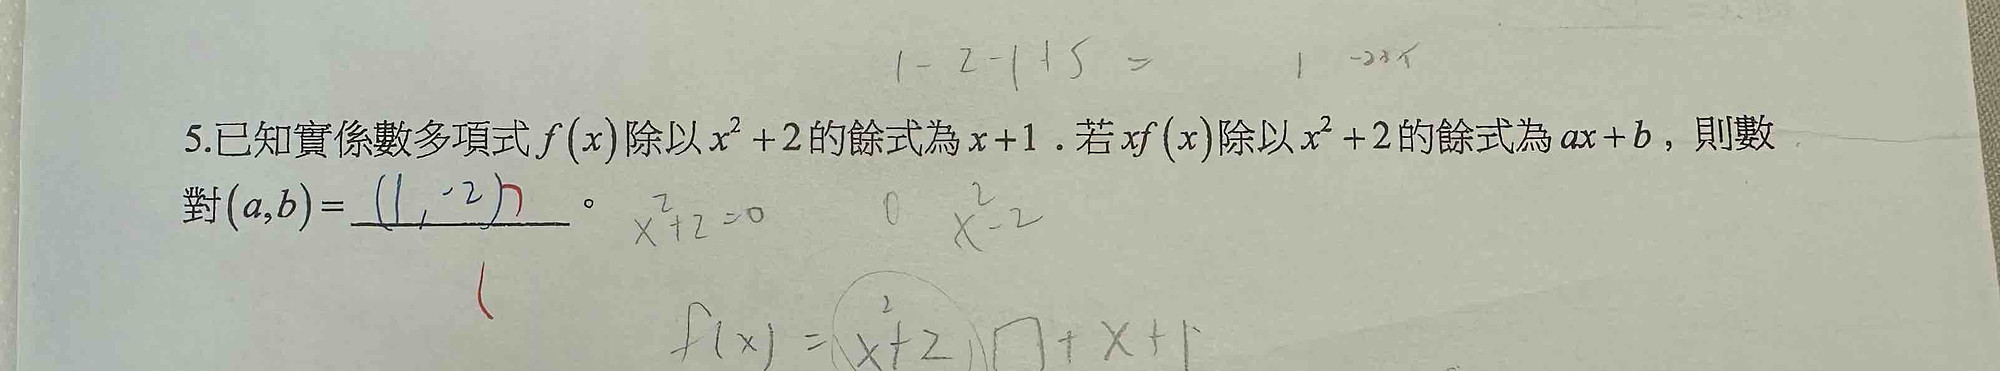 1-2-1+5=
5.已知實係數多項式 f(x)除以 x²+2的餘式為 x+1．若 xf(x)除以 x²+2的餘式為 ax+b，則數
對(a,b)= (1,-2) 。 x²+2=0 0 x²-2
f(x)=(x²+2)□+x+1